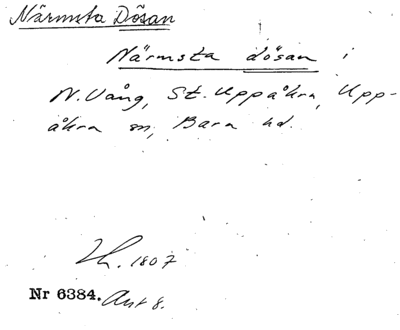 Närmsta Dösan
Närmsta dösan i
N. Vång, St. Uppåkra, Upp-
åkra sn, Bara hd.
Lh. 1807
Nr 6384. Ant 8.